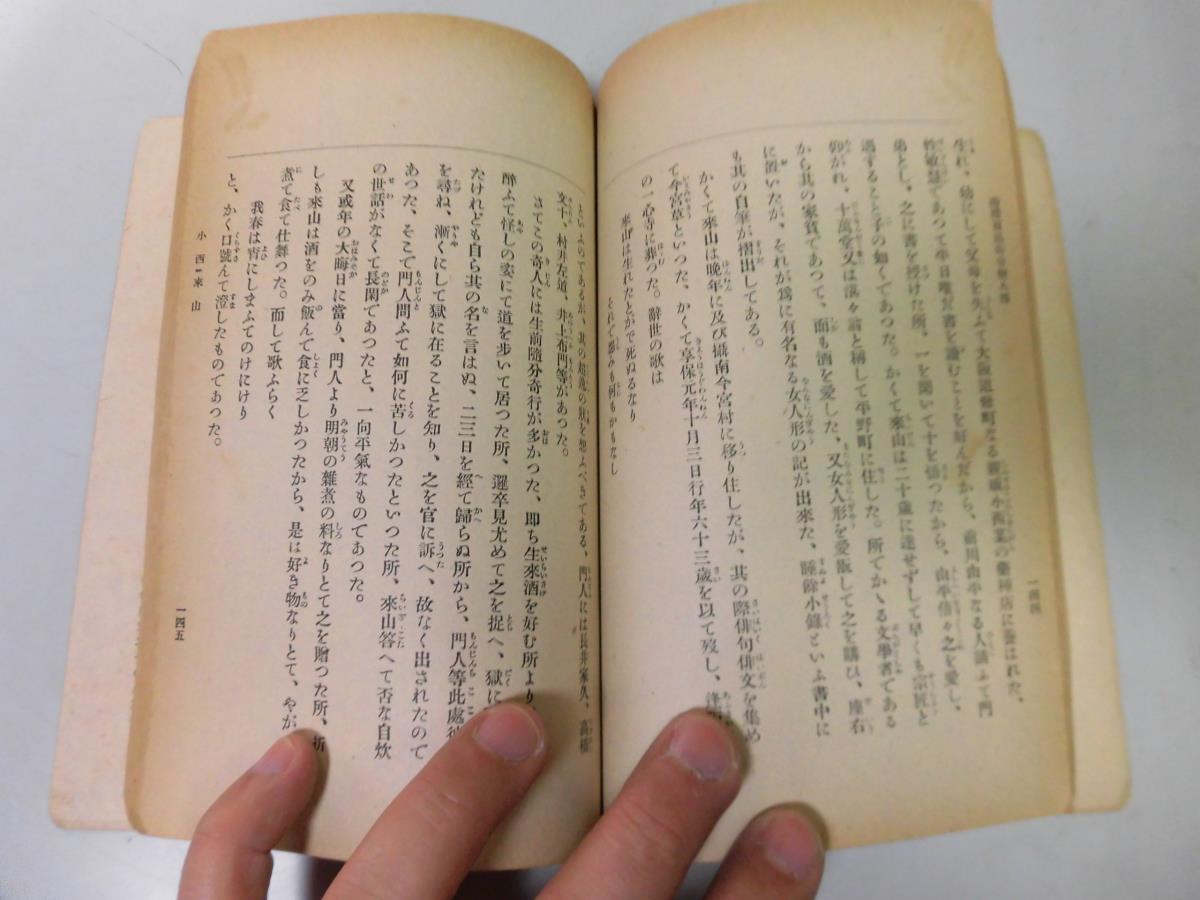 一四四
生れ、幼にして父母を失ふて大阪道修町なる
小西某の藥種店に養はれた、
性敏慧であつて平日唯だ書を讀むことを好んだから、前川由平なる人請ふて門
弟とし、之に書を授けた所、一を聞いて十を悟つたから、由平倍々之を愛し、
遇すること子の如くであつた。かくて來山は二十歳に達せずして早くも宗匠と
仰がれ、十萬堂又は湛々翁と稱して平野町に住した。所でかゝる文學者である
から其の家貧であつて、而も酒を愛した、又女人形を愛翫して之を購ひ、座右
に置いたが、それが爲に有名なる女人形の記が出來た、睡餘小錄といふ書中に
も其の自筆が摺出してある。
かくて來山は晩年に及び攝南今宮村に移り住したが、其の際俳句俳文を集め
て今宮草といつた、かくて享保元年十月三日行年六十三歳を以て歿し、逢
の一心寺に葬つた。辭世の歌は
來山は生れたとがで死ぬるなり
それで恨みも何もかもなし
といよのであるが、其の超逸の狀を想ふべきである、門人には長井家久、高樹
文十、村井左道、井上布門等があつた。
さてこの奇人には生前隨分奇行が多かつた、即ち生來酒を好む所より
醉ふて怪しの姿にて道を歩いて居つた所、邏卒見尤めて之を捉へ、獄に
たけれども自ら其の名を言はぬ、二三日を經て歸らぬ所から、門人等此處彼
を尋ね、漸くにして獄に在ることを知り、之を官に訴へ、故なく出されたので
あつた、そこで門人間ふて如何に苦しかつたといつた所、來山答へて否な自炊
の世話がなくて長閑であつたと、一向平氣なものてあつた。
又或年の大晦日に當り、門人より明朝の雜煮の料なりとて之を贈つた所、折
しも來山は酒をのみ飯んで食に乏しかつたから、是は好き物なりとて、やが
煮て食て仕舞つた。而して歌ふらく
我春は宵にしまふてのけにけり
と、かく口號んで澄したものであつた。
小西來山
一四五